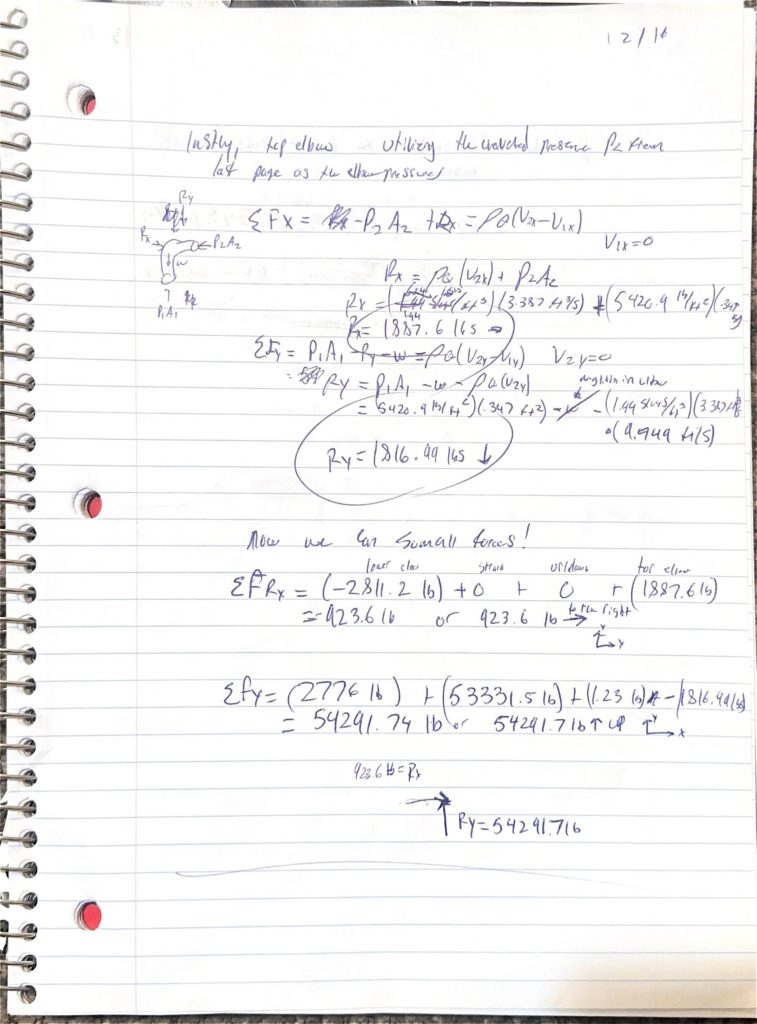 12/16
lastly, top elbow utilizing the pressure P2 from
last page as the elbow pressure
Ry
Rx P2A2
w
P1A1
ΣFx = -P2A2 + Rx = ρQ(V2x-V1x)
V1x=0
Rx = ρQ(V2x) + P2A2
(3.387 ft3/s) + (5420.9 lb/ft2)(.347
Rx = 1887.6 lbs →
ΣFy = P1A1 - Ry - w = ρQ(V2y-V1y) V2y=0
Ry = P1A1 - w - ρQ(V2y)
weight in elbow
= (5420.9 lb/ft2)(.347 ft2) - w - (1.94 slugs/ft3)(3.387
•(9.949 ft/s)
Ry = 1816.99 lbs ↓
Now we can sum all forces!
lower elbow top elbow
ΣFRx = (-2811.2 lb) + 0 + 0 + (1887.6 lb)
= -923.6 lb or 923.6 lb → to the right
Y
X
Σfy = (2776 lb) + (53331.5 lb) + (1.23 lb) - (1816.99 lb)
= 54291.74 lb or 54291.7 lb ↑ up Y X
923.6 lb = Rx
Ry = 54291.7 lb